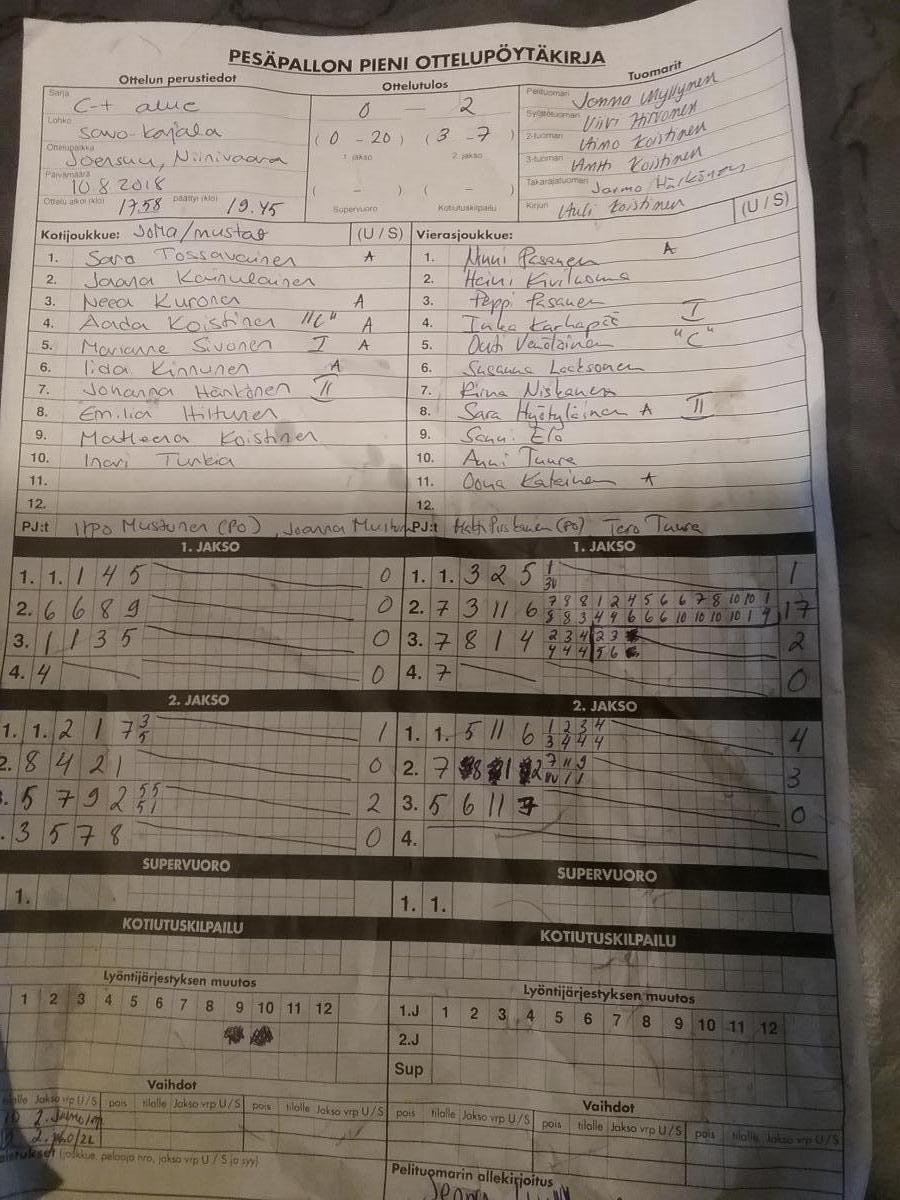 PESÄPALLON PIENI OTTELUPÖYTÄKIRJA
Ottelun perustiedot
Sarja C-t alue
Lohko savo-karjala
Ottelupaikka Joensuu, Niinivaara
Päivämäärä 10.8.2018
Ottelu alkoi (klo) 17.58 päättyi (klo) 19.45
Ottelutulos
0 – 2
(0 - 20) (3 - 7)
1. jakso 2. jakso
( – ) ( – )
Supervuoro Kotiutuskilpailu
Tuomarit
Pelituomari Jonna Myllynen
Syöttötuomari Viivi Hirvonen
2-tuomari Aimo Koistinen
3-tuomari Antti Koistinen
Takarajatuomari Jarmo Härkönen
Kirjuri Auli Koistinen
(U / S)
Kotijoukkue: JoMa/mustat (U / S)
1. Sara Tossavainen A
2. Jaana Kainulainen
3. Neea Kuronen A
4. Aada Koistinen "C" A
5. Marianne Sivonen I A
6. Iida Kinnunen A
7. Johanna Hänkönen II
8. Emilia Hiltunen
9. Matleena Koistinen
10. Inari Turkia
11.
12.
PJ:t Ilpo Mustonen (PO), Joanna
Vierasjoukkue:
1. Minni Pasanen A
2. Heini
3. Peppi Pasanen
4. Inka Karhapää I
5. Outi Venäläinen "C"
6. Susanna
7. Niskanen
8. Sara Hyötyläinen A II
9. Sanni Elo
10. Anni Tuure
11. Oona Katainen A
12.
PJ:t (PO) Tero Tuure
1. JAKSO
1. 1. 1 4 5 0
2. 6 6 8 9 0
3. 1 1 3 5 0
4. 4 0
1. JAKSO
1. 1. 3 2 5 1 1
2. 7 3 11 6 7 8 8 1 2 4 5 6 6 7 8 10 10 1 17
8 8 3 4 4 6 6 6 10 10 10 10 1 4
3. 7 8 1 4 2 3 4 2 3 2
4 4 4 5 6
4. 7 0
2. JAKSO
1. 1. 2 1 7 3 1
5
2. 8 4 2 1 0
5 7 9 2 5 5 2
5 1
3 5 7 8 0
2. JAKSO
1. 1. 5 11 6 1 2 3 4 4
3 4 4 4
2. 7 8 1 2 7 11 9 3
3. 5 6 11 7 0
4.
SUPERVUORO
1.
SUPERVUORO
1. 1.
KOTIUTUSKILPAILU
KOTIUTUSKILPAILU
Lyöntijärjestyksen muutos
1 2 3 4 5 6 7 8 9 10 11 12
Lyöntijärjestyksen muutos
1.J 1 2 3 4 5 6 7 8 9 10 11 12
2.J
Sup
Vaihdot
tilalle Jakso vrp U / S pois tilalle Jakso vrp U / S pois tilalle Jakso vrp U / S
Vaihdot
pois tilalle Jakso vrp U / S pois tilalle Jakso vrp U / S pois tilalle Jakso vrp U / S
(joukkue, pelaaja nro, jakso vrp U / S ja syy)
Pelituomarin allekirjoitus